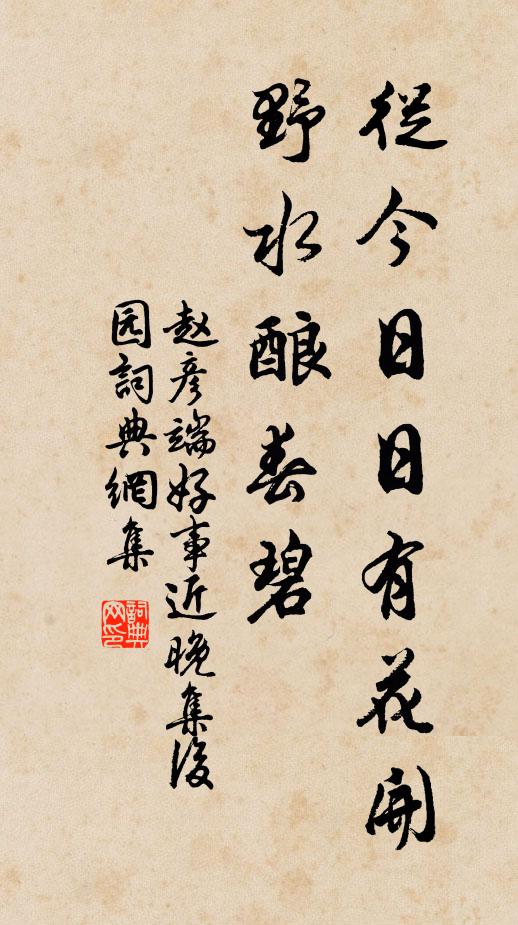 從今日日有花開
野水酿春碧
赵彦端好事近晚集後
园詞典網集
詞典
网印